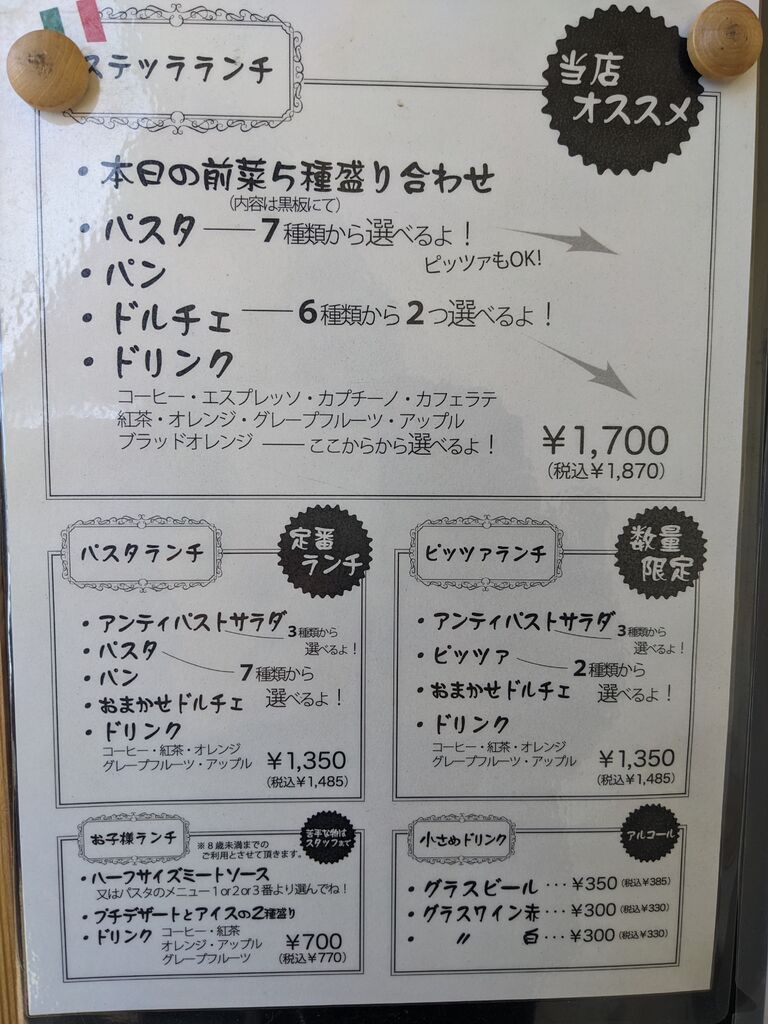 ステッラランチ
当店
オススメ
・本日の前菜5種盛り合わせ
(内容は黒板にて)
・パスタ ── 7種類から選べるよ！
ピッツァもOK!
・パン
・ドルチェ ── 6種類から2つ選べるよ！
・ドリンク
コーヒー・エスプレッソ・カプチーノ・カフェラテ
紅茶・オレンジ・グレープフルーツ・アップル
ブラッドオレンジ ── ここからから選べるよ！
￥1,700
(税込￥1,870)
パスタランチ
定番
ランチ
・アンティパストサラダ
3種類から
選べるよ！
・パスタ
7種類から
選べるよ！
・パン
・おまかせドルチェ
・ドリンク
コーヒー・紅茶・オレンジ
グレープフルーツ・アップル
￥1,350
(税込￥1,485)
ピッツァランチ
数量
限定
・アンティパストサラダ
3種類から
選べるよ！
・ピッツァ
2種類から
選べるよ！
・おまかせドルチェ
・ドリンク
コーヒー・紅茶・オレンジ
グレープフルーツ・アップル
￥1,350
(税込￥1,485)
お子様ランチ
※8歳未満までの
ご利用とさせて頂きます。
苦手な物は
スタッフまで
・ハーフサイズミートソース
又はパスタのメニュー1or2or3番より選んでね！
・プチデザートとアイスの2種盛り
・ドリンク コーヒー・紅茶
オレンジ・アップル
グレープフルーツ
￥700
(税込￥770)
小さめドリンク
アルコール
・グラスビール･･･￥350(税込￥385)
・グラスワイン赤･･･￥300(税込￥330)
・ 〃 白･･･￥300(税込￥330)